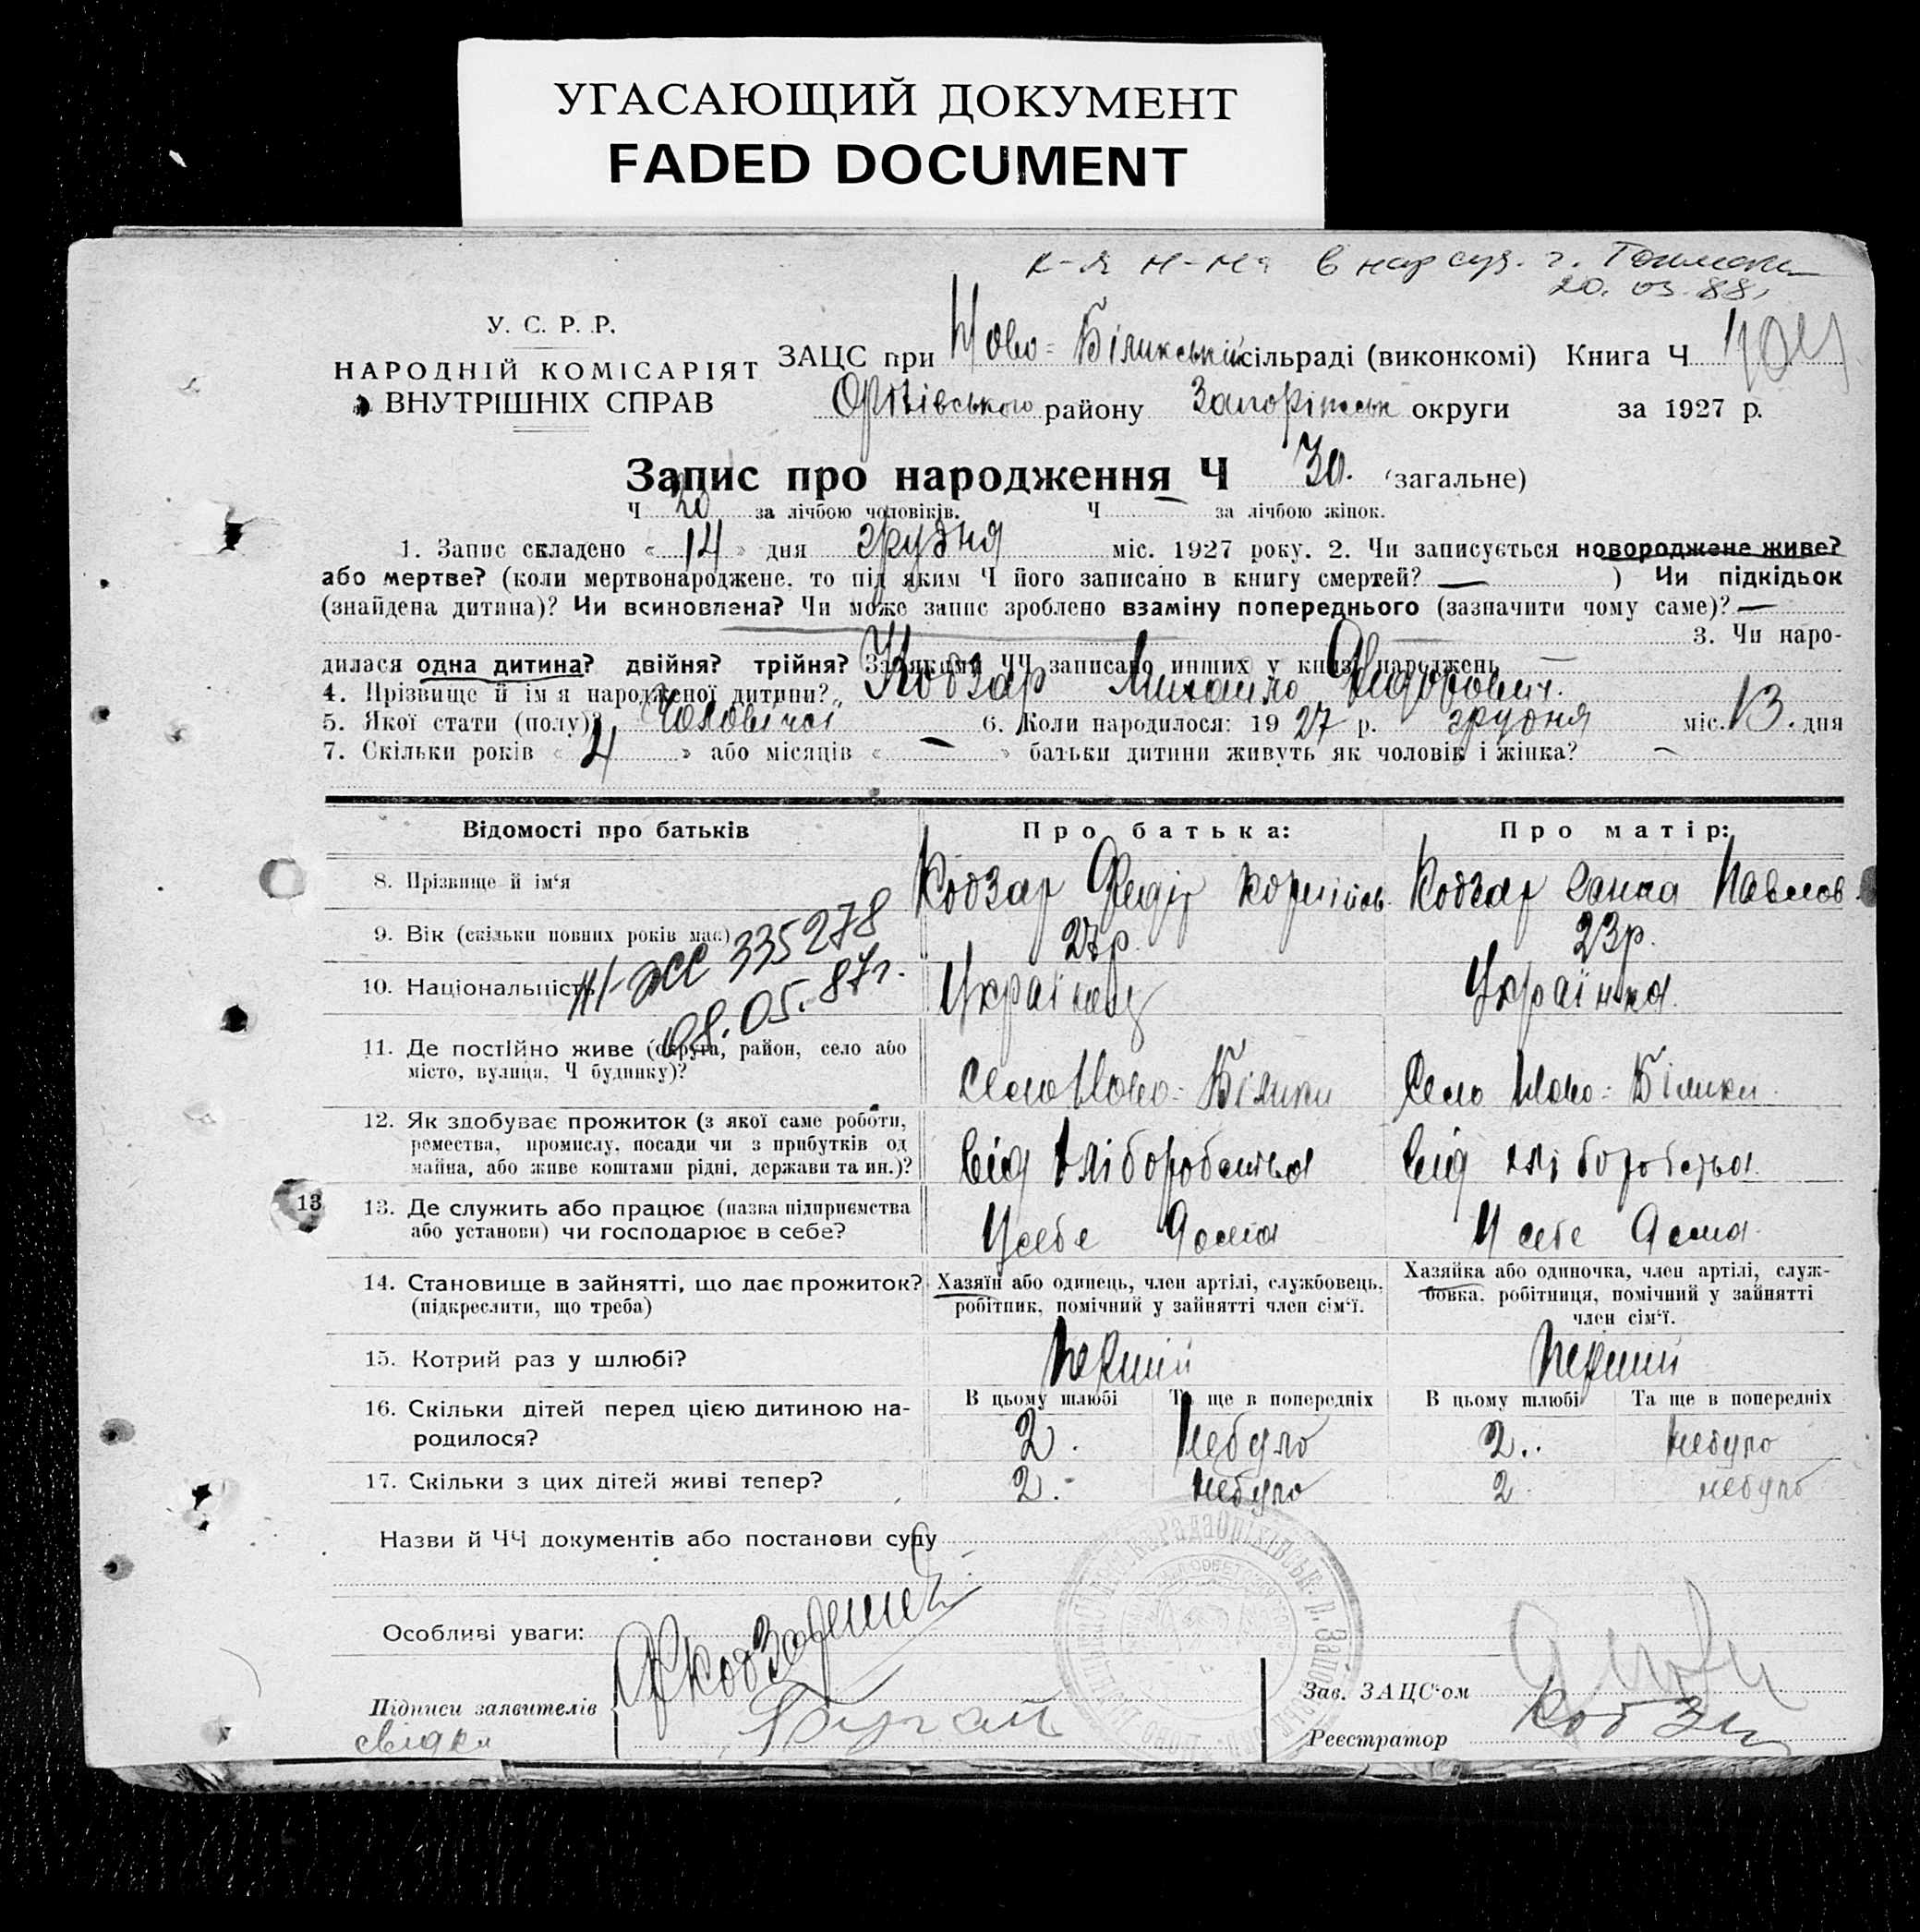 УГАСАЮЩИЙ ДОКУМЕНТ
FADED DOCUMENT
к-я н-на в нарсуд. г. Токмак
20.03.88,
У. С. Р. Р.
НАРОДНІЙ КОМІСАРІЯТ
ВНУТРІШНІХ СПРАВ
ЗАЦС при Ново-Біликській сільраді (виконкомі) Книга Ч
Оріхівського району Запоріжськ округи за 1927 р.
Запис про народження Ч 30. (загальне)
Ч 20 за лічбою чоловіків. Ч — за лічбою жінок.
1. Запис складено « 14 » дня грудня міс. 1927 року. 2. Чи записується новороджене живе?
або мертве? (коли мертвонароджене, то під яким Ч його записано в книгу смертей? — ) Чи підкідьок
(знайдена дитина)? Чи всиновлена? Чи може запис зроблено взаміну попереднього (зазначити чому саме)? —
3. Чи наро-
дилася одна дитина? двійня? трійня? За якими ЧЧ записано инших у книзі народжень —
4. Прізвище й ім'я народженої дитини? Кобзар Михайло Федорович.
5. Якої стати (полу)? Чоловічої 6. Коли народилося: 1927 р. грудня міс. 13. дня
7. Скільки років « 4 » або місяців « — » батьки дитини живуть як чоловік і жінка? —
Відомості про батьків Про батька: Про матір:
8. Прізвище й ім'я Кобзар Федір Корнійов. Кобзар Ганна Павлов.
9. Вік (скільки повних років має) 27р. 23р.
335278
10. Національність Українец Українка.
08.05.87г.
11. Де постійно живе (округа, район, село або
місто, вулиця, Ч будинку)? Село Ново-Білики Село Ново-Білики.
12. Як здобуває прожиток (з якої саме роботи,
ремества, промислу, посади чи з прибутків од
майна, або живе коштами рідні, держави та ин.)? Від хліборобства Від хліборобства.
13
13. Де служить або працює (назва підприємства
або установи) чи господарює в себе? У себе дома У себе дома.
14. Становище в зайнятті, що дає прожиток?
(підкреслити, що треба)
Хазяїн або одинець, член артілі, службовець,
робітник, помічний у зайнятті член сім'ї.
Хазяйка або одиночка, член артілі, служ-
бовка, робітниця, помічний у зайнятті
член сім'ї.
15. Котрий раз у шлюбі? Перший Перший
В цьому шлюбі Та ще в попередніх В цьому шлюбі Та ще в попередніх
16. Скільки дітей перед цією дитиною на-
родилося? 2. небуло 2.. небуло
17. Скільки з цих дітей живі тепер? 2.- небуло 2. небуло
Назви й ЧЧ документів або постанови суду
Особливі уваги:
Підписи заявителів
свідки
Бугай
Зав. ЗАЦС'ом
Реєстратор Кобз